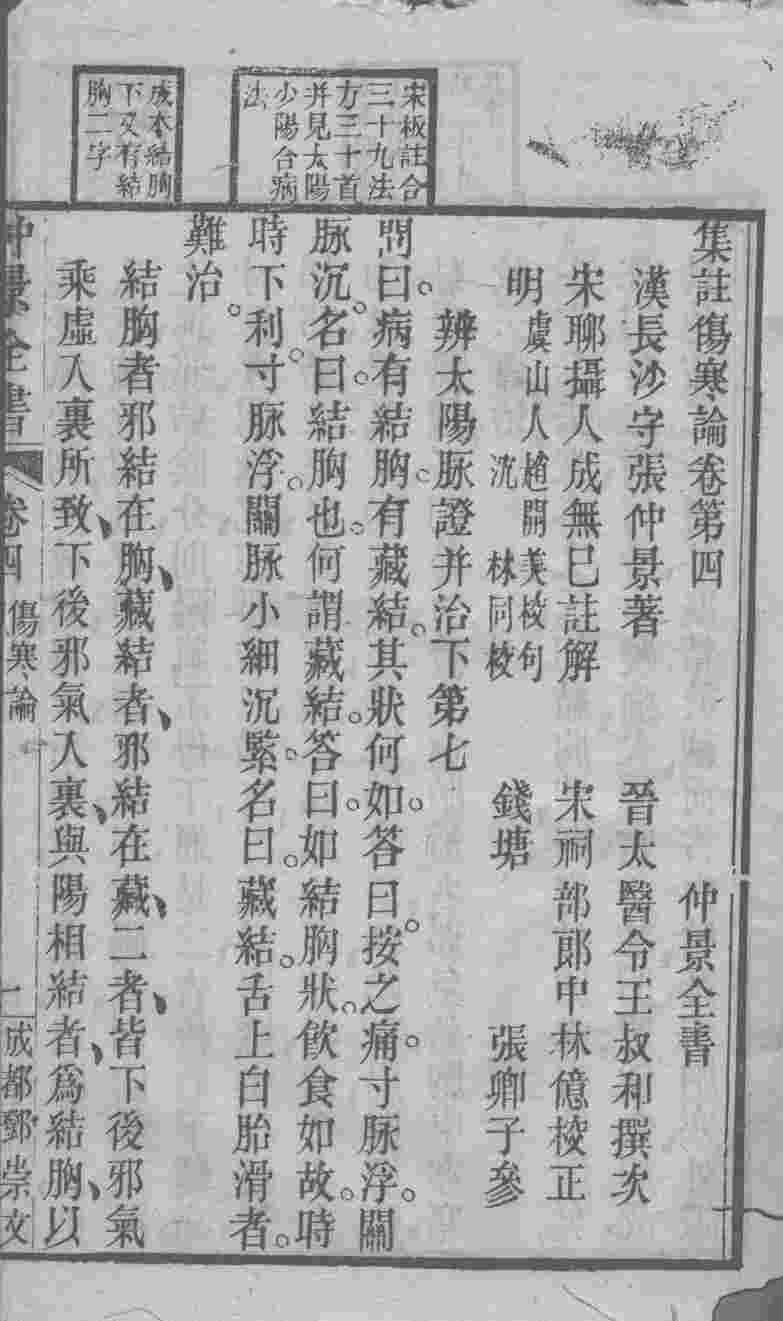 宋板註合
三十九法
方三十首
并見太陽
少陽合病
法
成本結胸
下又有結
胸二字
集註傷寒論卷第四 仲景全書
漢長沙守張仲景著 晉太醫令王叔和撰次
宋聊攝人成無已註解 宋祠部郎中林億校正
明 虞山人趙開美校句
沈 林同校 錢塘 張卿子參
辨太陽脈證并治下第七
問曰。病有結胸。有藏結。其狀何如。答曰。按之痛。寸脈浮。關
脈沉。名曰。結胸也。何謂藏結。答曰。如結胸狀。飲食如故。時
時下利。寸脈浮。關脈小細沉緊。名曰。藏結。舌上白胎滑者。
難治。
結胸者邪結在胸、藏結者、邪結在藏、二者、皆下後邪氣
乘虛入裏所致、下後邪氣入裏、與陽相結者、爲結胸、以
仲景全書 卷四 傷寒論 一 成都鄧崇文